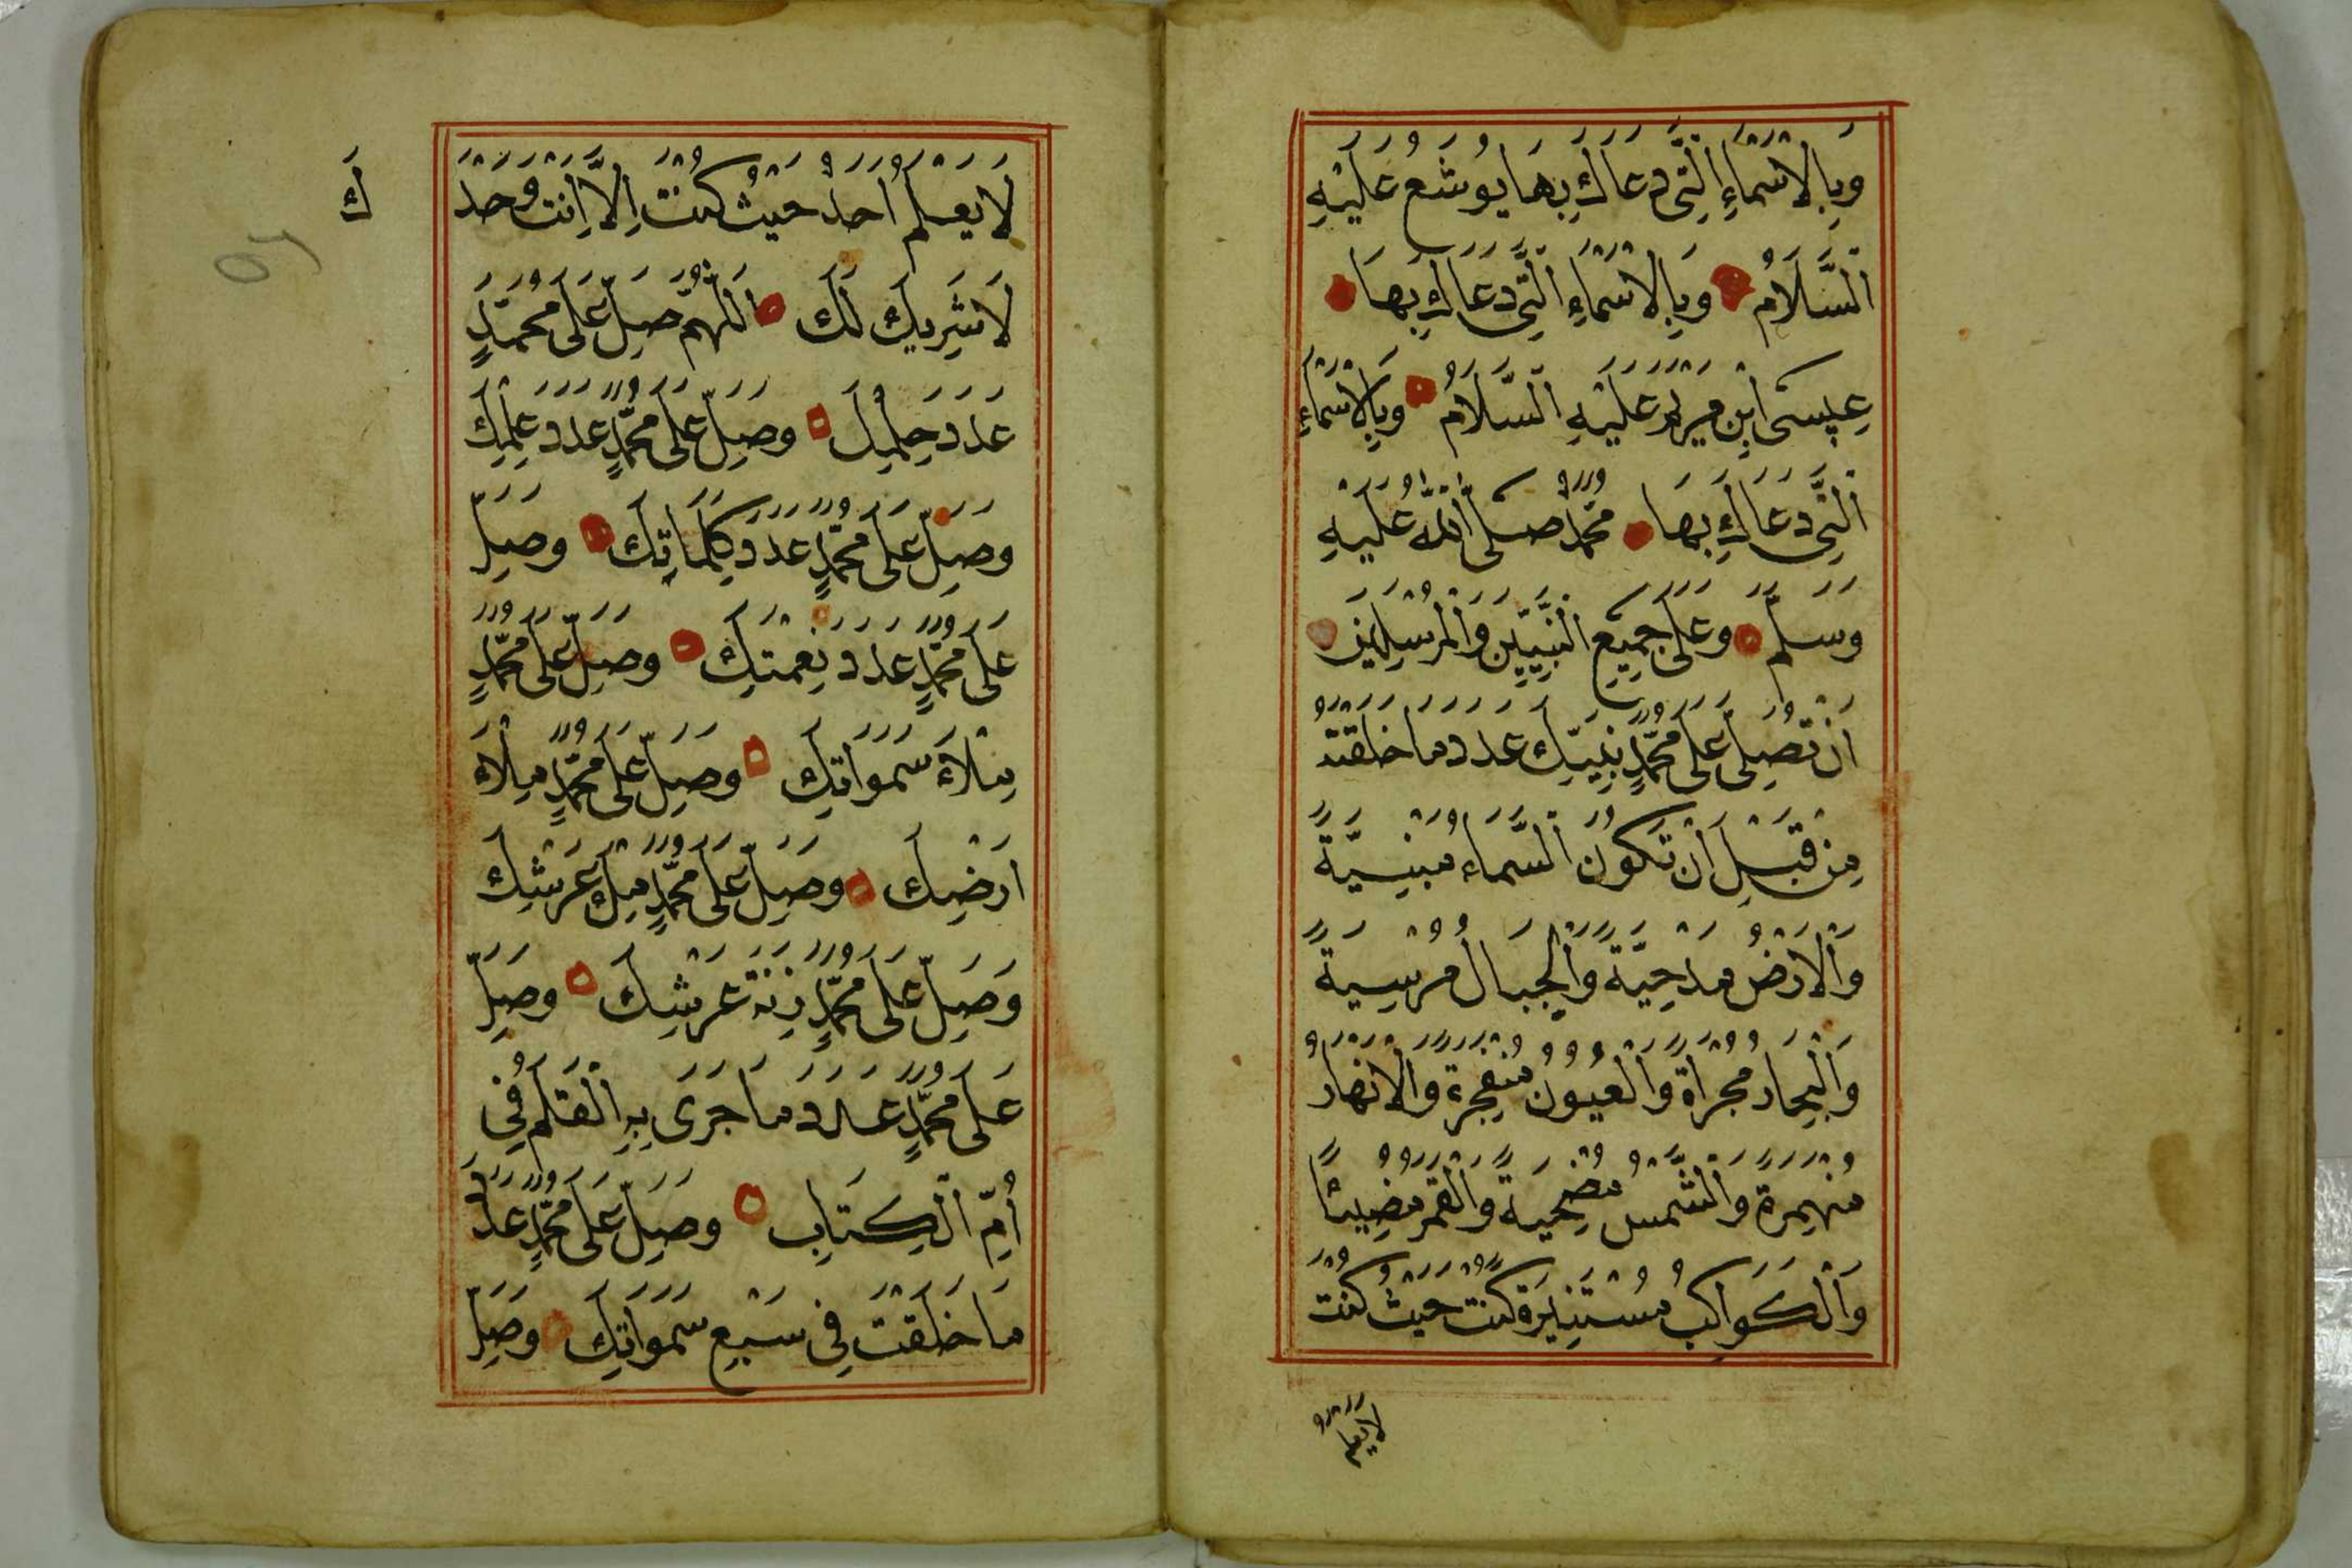 وَبِالْاَسْمَاءِ الَّتِى دَعَاكَ بِهَا يُوشَعُ عَلَيْهِ
السَّلَامُ وَبِالْاَسْمَاءِ الَّتِى دَعَاكَ بِهَا
عِيسَى ابْنِ مَرْيَمَ عَلَيْهِ السَّلَامُ وَبِالْاَسْمَاءِ
الَّتِى دَعَاكَ بِهَا مُحَمَّدٌ صَلَّى اللّٰهُ عَلَيْهِ
وَسَلَّمَ وَعَلَى جَمِيعِ النَّبِيِّينَ وَالْمُرْسَلِينَ
اَنْ تُصَلِّىَ عَلَى مُحَمَّدٍ نَبِيِّكَ عَدَدَ مَا خَلَقْتَهُ
مِنْ قَبْلِ اَنْ تَكُونَ السَّمَاءُ مَبْنِيَّةً
وَالْاَرْضُ مَدْحِيَّةً وَالْجِبَالُ مُرْسِيَةً
وَالْبِحَارُ مُجْرَاةً وَالْعُيُونُ مُنْفَجِرَةً وَالْاَنْهَارُ
مُنْهَمِرَةً وَالشَّمْسُ مُضْحِيَةً وَالْقَمَرُ مُضِيئًا
وَالْكَوَاكِبُ مُسْتَنِيرَةً كُنْتَ حَيْثُ كُنْتَ
لَا يَعْلَمُ
لَا يَعْلَمُ اَحَدٌ حَيْثُ كُنْتَ اِلَّا اَنْتَ وَحْدَ
كَ
لَا شَرِيكَ لَكَ اَللّٰهُمَّ صَلِّ عَلَى مُحَمَّدٍ
عَدَدَ حِلْمِكَ وَصَلِّ عَلَى مُحَمَّدٍ عَدَدَ عِلْمِكَ
وَصَلِّ عَلَى مُحَمَّدٍ عَدَدَ كَلِمَاتِكَ وَصَلِّ
عَلَى مُحَمَّدٍ عَدَدَ نِعْمَتِكَ وَصَلِّ عَلَى مُحَمَّدٍ
مِلْاَءَ سَمَوَاتِكَ وَصَلِّ عَلَى مُحَمَّدٍ مِلْاَءَ
اَرْضِكَ وَصَلِّ عَلَى مُحَمَّدٍ مِلْءَ عَرْشِكَ
وَصَلِّ عَلَى مُحَمَّدٍ زِنَةَ عَرْشِكَ وَصَلِّ
عَلَى مُحَمَّدٍ عَدَدَ مَا جَرَى بِهِ الْقَلَمُ فِى
اُمِّ الْكِتَابِ وَصَلِّ عَلَى مُحَمَّدٍ عَدَدَ
مَا خَلَقْتَ فِى سَبْعِ سَمَوَاتِكَ وَصَلِّ